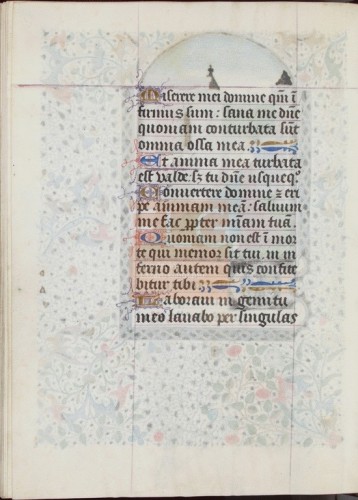 Miserere mei domine qm̄ ī
firmus sum: sana me dn̄e
quoniam conturbata sūt
omnia ossa mea.
Et anima mea turbata
est valde: sꝫ tu dn̄e usquequo
Convertere domine ⁊ eri
pe animam meā: salvum
me fac ꝓpter mīam tuā.
Quoniam non est ī mor
te qui memor sit tui: in in
ferno autem quis confite
bitur tibi
Laboravi in gemitu
meo lavabo per singulas